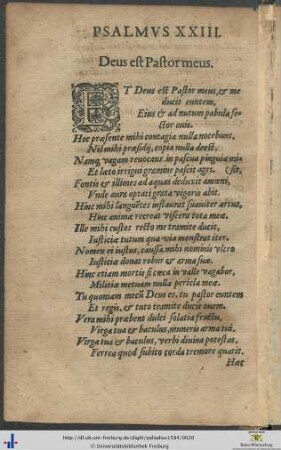 PSALMVS XXIII.
Deus est Pastor meus.
ET Deus est Pastor meus, & me
ducit euntem,
Eius & ad nutum pabula se-
ctor ouis.
Hoc præsente mihi contagia nulla nocebunt,
Nil mihi præsidij, copia nulla deest.
Namq; vagam reuocans in pascua pinguia mi-
Et læto irrigui gramine pascit agri. (sit,
Fontis & illimes ad aquas deduxit amœni,
Vnde aura optati grata vigoris abit.
Hinc mihi languētes instaurat suauiter artus,
Hinc animæ recreat viscera tota meæ.
Ille mihi custos recto me tramite ducit,
Iusticiæ tutum qua via monstrat iter.
Nomen ei iustus, caussa mihi nominis vltro
Iusticiæ donas robur & arma suæ.
Hinc etiam mortis si cæca in valle vagabor,
Militiæ metuam nulla pericla meæ.
Tu quoniam mecū Deus es, tu pastor euntem
Et regis, & tuto tramite ducis ouem.
Vera mihi præbent dulci solatia fructu,
Virga tua & baculus, muneris arma tui.
Virga tua & baculus, verbi diuina potestas,
Ferrea quod subito corda tremore quatit.
Hæc
http://dl.ub.uni-freiburg.de/diglit/palladius1584/0020
© Universitätsbibliothek Freiburg
Baden-Württemberg